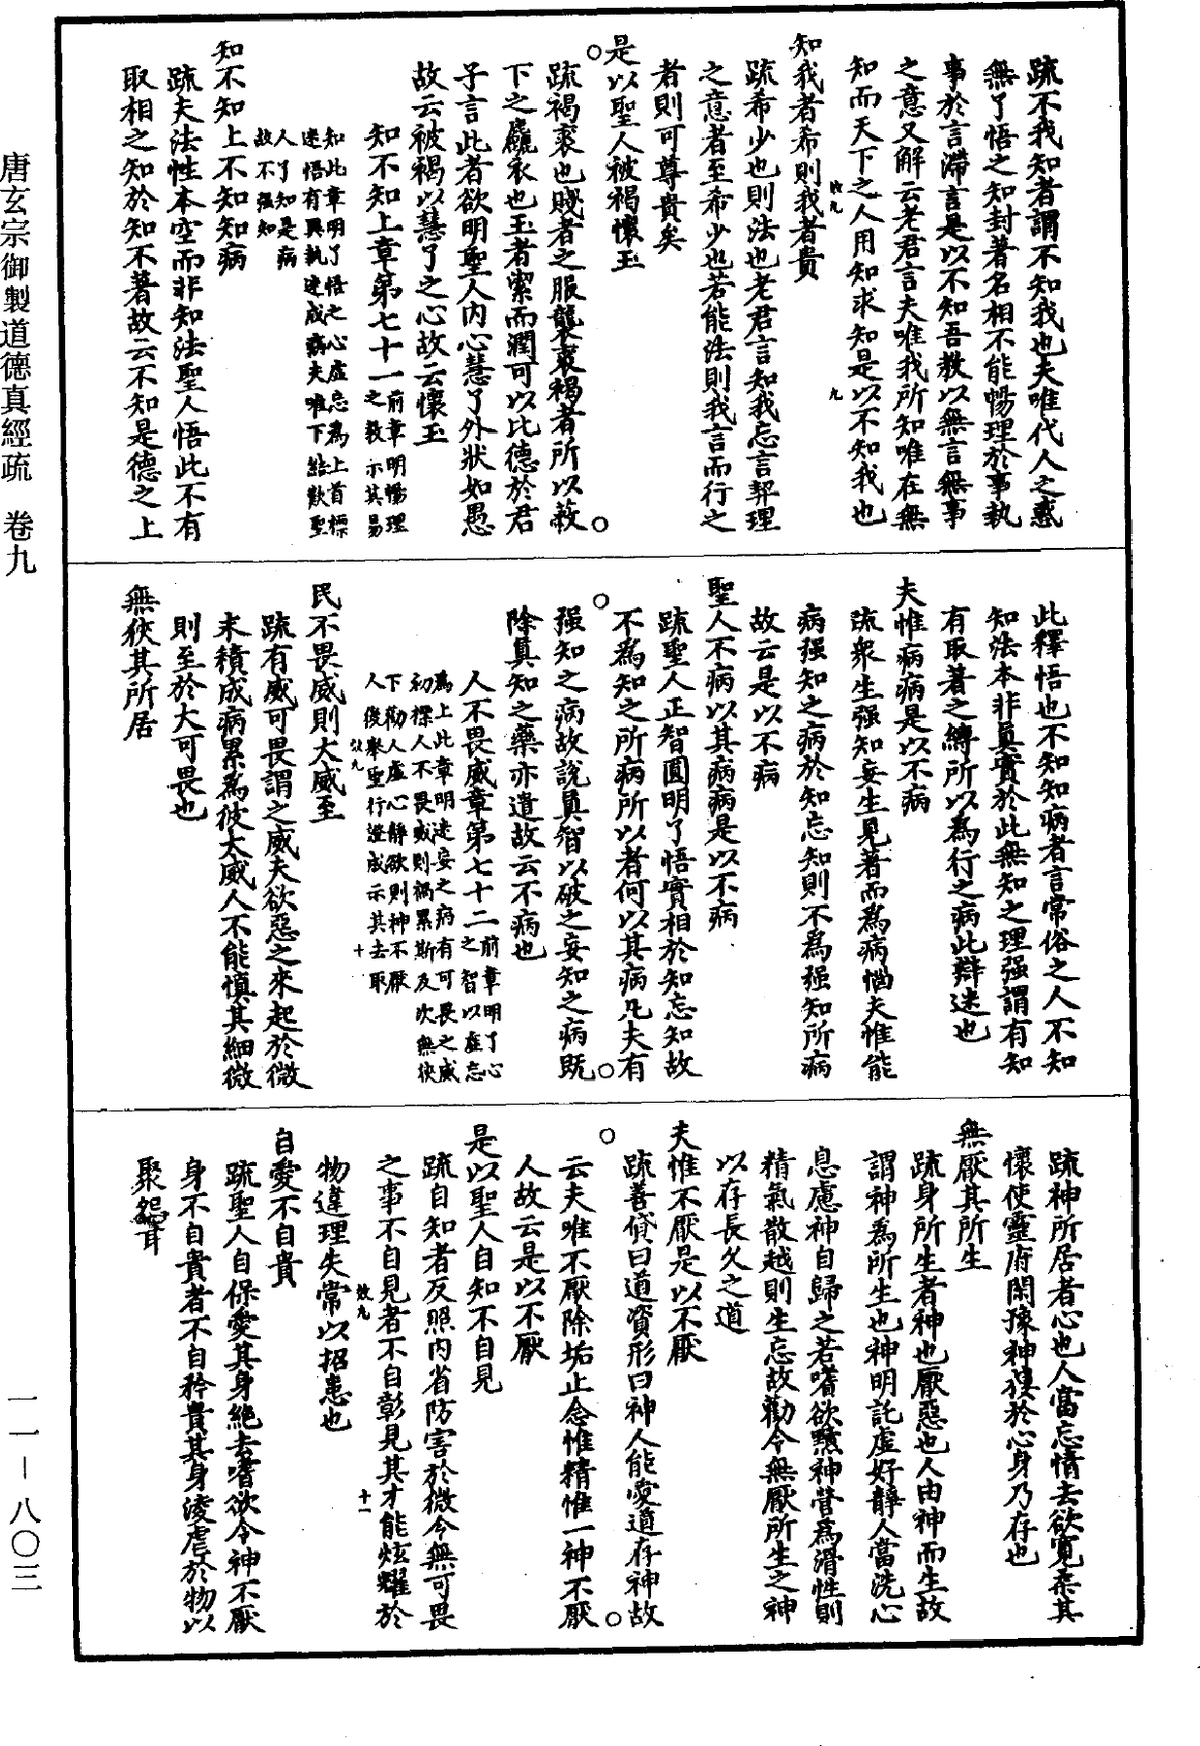 疏不我知者謂不知我也夫唯代人之惑
無了悟之知封著名相不能暢理於事執
事於言滯言是以不知吾教以無言無事
之意又解云老君言夫唯我所知唯在無
知而天下之人用知求知是以不知我也
知我者希則我者貴
疏希少也則法也老君言知我忘言契理
之意者至希少也若能法則我言而行之
者則可尊貴矣
是以聖人被褐懷玉
疏褐裘也賤者之服襲裘褐者所以蔽
下之麤衣也玉者潔而潤可以比德於君
子言此者欲明聖人內心慧了外狀如愚
故云被褐以慧了之心故云懷玉
知不知上章第七十一前章明暢理之教示其易
知此章明了悟之心虛忘為上首標
迷悟有異執迷成病夫唯下結歎聖
人了知是病
故不强知
知不知上不知知病
疏夫法性本空而非知法聖人悟此不有
取相之知於知不著故云不知是德之上
此釋悟也不知知病者言常俗之人不知
知法本非真實於此無知之理强謂有知
有取著之縛所以為行之病此辯迷也
夫惟病病是以不病
疏眾生强知妄生見著而為病惱夫惟能
病强知之病於知忘知則不為强知所病
故云是以不病
聖人不病以其病病是以不病
疏聖人正智圓明了悟實相於知忘知故
不為知之所病所以者何以其病凡夫有
强知之病故說真智以破之妄知之病既
除真知之藥亦遣故云不病也
人不畏威章第七十二前章明了心之智以虛忘
為上此章明迷妄之病有可畏之威
初標人不畏威則禍累斯及次無狹
下勸人虛心靜欲則神不厭
人後舉聖行證成示其去取
民不畏威則大威至
疏有威可畏謂之威夫欲惡之來起於微
末積成病累為彼大威人不能慎其細微
則至於大可畏也
無狹其所居
疏神所居者心也人當忘情去欲寬柔其
懷使靈府閑豫神棲於心身乃存也
無厭其所生
疏身所生者神也厭惡也人由神而生故
謂神為所生也神明託虛好靜人當洗心
息慮神自歸之若嗜欲黷神營為滑性則
精氣散越則生忘故勸令無厭所生之神
以存長久之道
夫惟不厭是以不厭
疏善貸曰道資形曰神人能愛道存神故
云夫唯不厭除垢止念惟精惟一神不厭
人故云是以不厭
是以聖人自知不自見
疏自知者反照內省防害於微令無可畏
之事不自見者不自彰見其才能炫耀於
物違理失常以招患也
自愛不自貴
疏聖人自保愛其身絶去嗜欲令神不厭
身不自貴者不自矜貴其身淩虐於物以
聚怨耳
唐玄宗御製道德真經疏 卷九
一一—八〇三